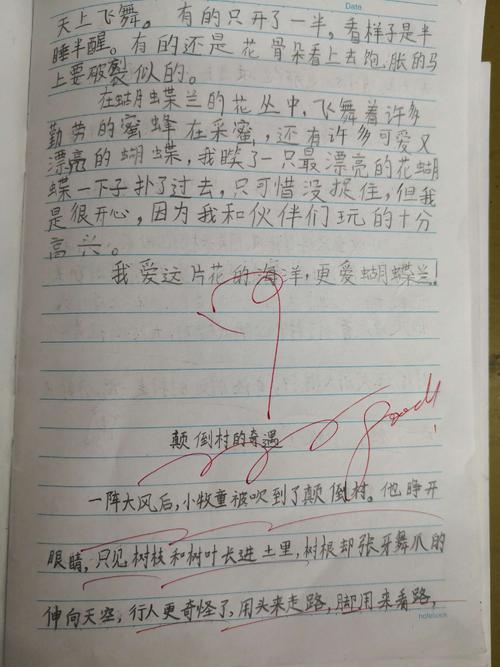 Date
天上飞舞。有的只开了一半，看样子是半
睡半醒。有的还是花骨朵看上去饱胀的马
上要破裂似的。
在蝴蝶兰的花丛中，飞舞着许多
勤劳的蜜蜂在采蜜，还有许多可爱又
漂亮的蝴蝶，我瞅了一只最漂亮的花蝴
蝶一下子扑了过去，只可惜没捉住，但我
是很开心，因为我和伙伴们玩的十分
高兴。
我爱这片花的海洋，更爱蝴蝶兰！
good!
颠倒村的奇遇
一阵大风后，小牧童被吹到了颠倒村。他睁开
眼睛，只见树枝和树叶长进土里，树根却张牙舞爪的
伸向天空，行人更奇怪了，用头来走路，脚用来看路，
notebook